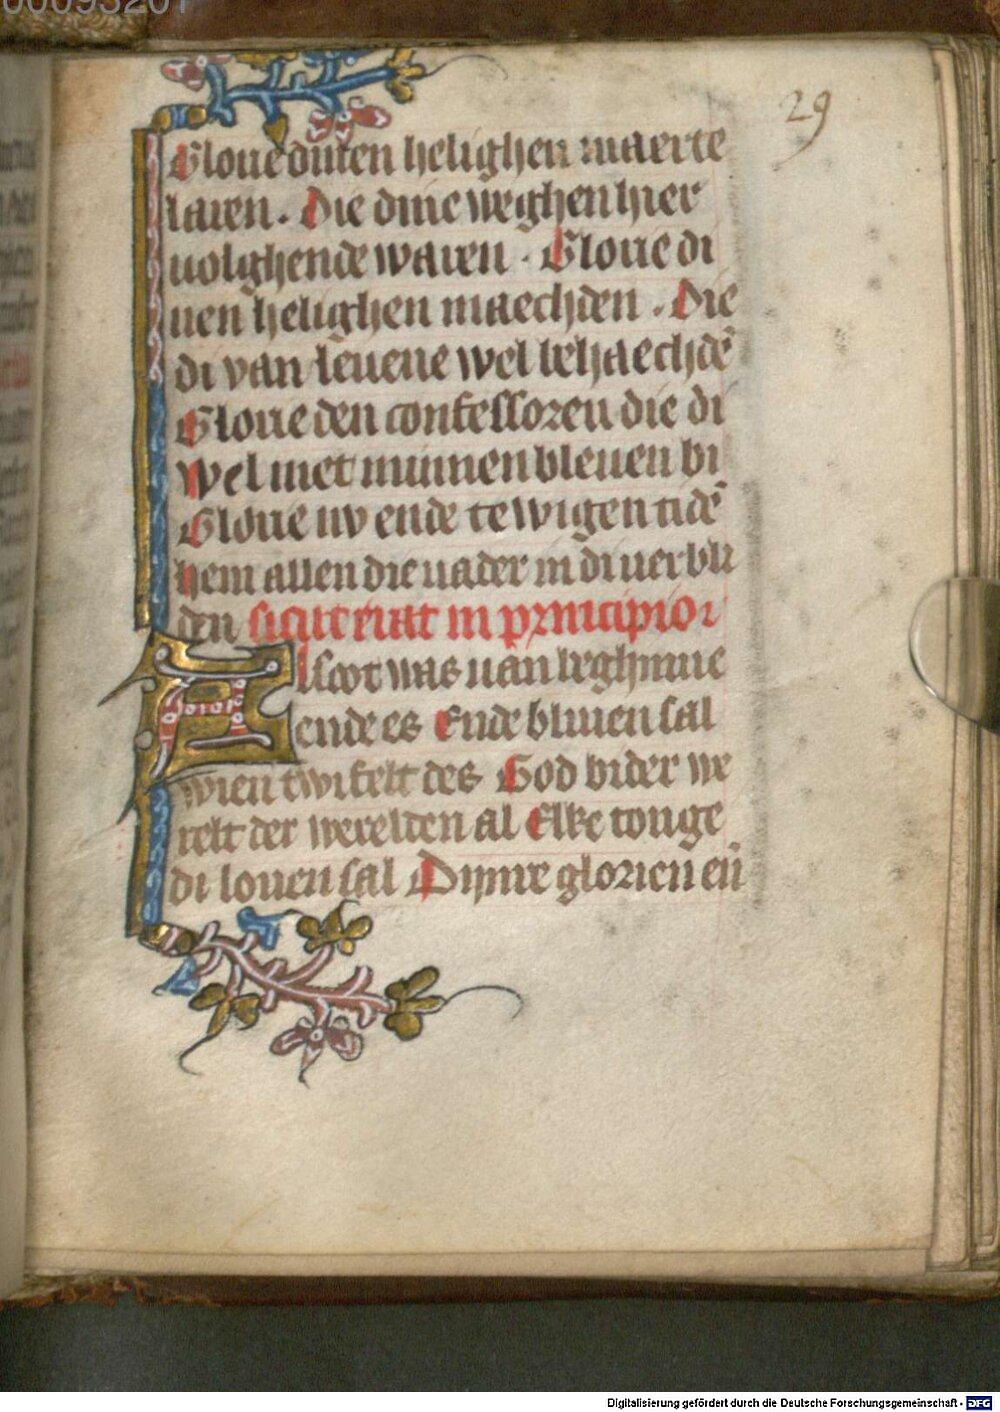 00093201
29
Gloue dinen helighen maerte
laren. Die dine weghen hier
uolghende waren. Gloue di
nen helighen maechden. Die
di van leuene wel behaechdē
Gloue den confessoren die di
wel met minnen bleuen bi
Gloue nv ende tewigen tidē
hem allen die uader in di uerbli
den sicut erat in principio
Alsoot was uan beghinne
ende es Ende bliuen sal
wien twifelt des God bider we
relt der werelden al Elke tonge
di louen sal Dijnre glorien eñ
Digitalisierung gefördert durch die Deutsche Forschungsgemeinschaft - DFG